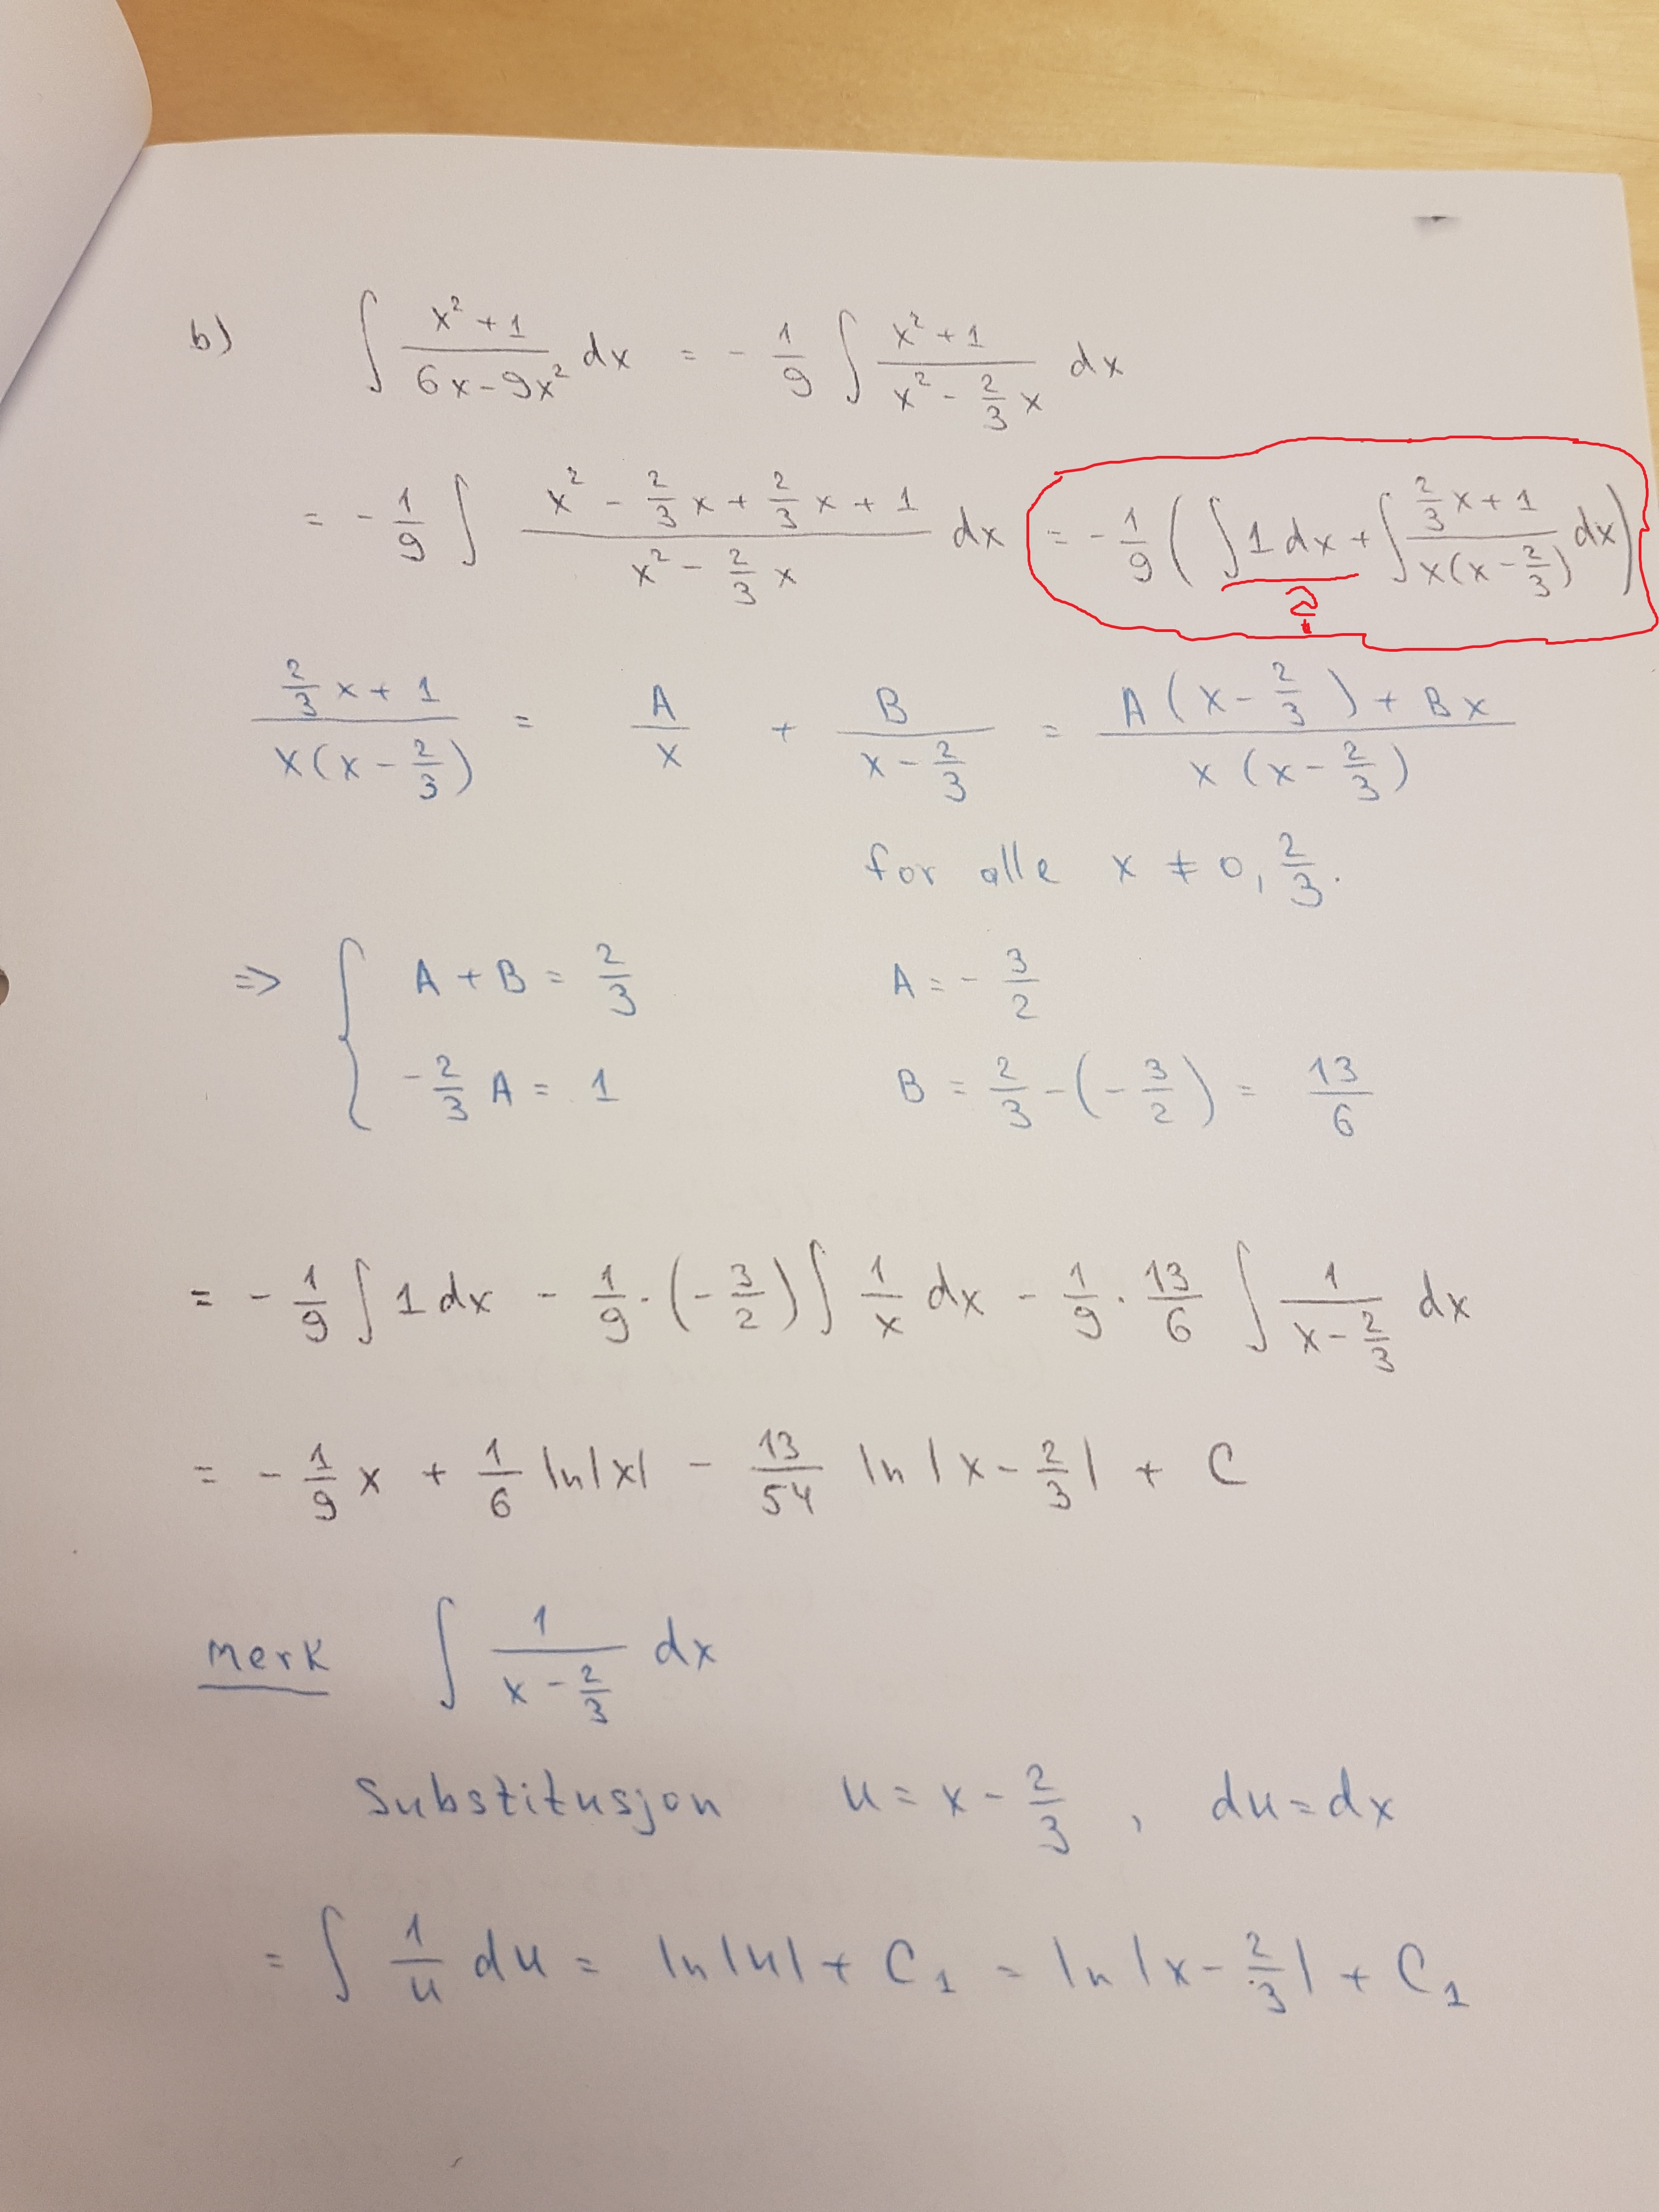 b) ∫ (x² + 1)/(6x - 9x²) dx = - 1/9 ∫ (x² + 1)/(x² - 2/3 x) dx
= - 1/9 ∫ (x² - 2/3 x + 2/3 x + 1)/(x² - 2/3 x) dx = - 1/9 ( ∫ 1 dx + ∫ (2/3 x + 1)/(x(x - 2/3)) dx )
?
(2/3 x + 1)/(x(x - 2/3)) = A/x + B/(x - 2/3) = (A(x - 2/3) + Bx)/(x(x - 2/3))
for alle x ≠ 0, 2/3.
=> { A + B = 2/3 A = - 3/2
- 2/3 A = 1 B = 2/3 - (- 3/2) = 13/6
= - 1/9 ∫ 1 dx - 1/9 · (- 3/2) ∫ 1/x dx - 1/9 · 13/6 ∫ 1/(x - 2/3) dx
= - 1/9 x + 1/6 ln|x| - 13/54 ln|x - 2/3| + C
Merk ∫ 1/(x - 2/3) dx
Substitusjon u = x - 2/3 , du = dx
= ∫ 1/u du = ln|u| + C₁ = ln|x - 2/3| + C₁